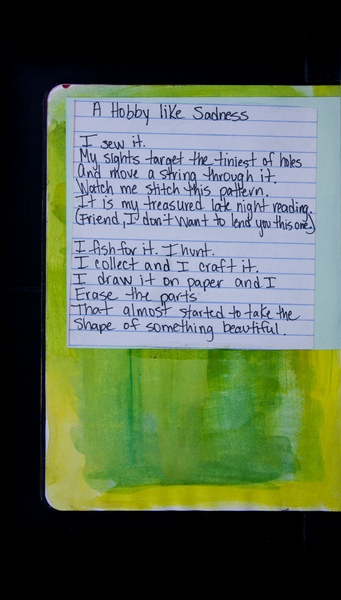 A Hobby like Sadness
I sew it.
My sights target the tiniest of holes
And move a string through it.
Watch me stitch this pattern.
It is my treasured late night reading.
(Friend, I don't want to lend you this one)
I fish for it. I hunt.
I collect and I craft it.
I draw it on paper and I
Erase the parts
That almost started to take the
Shape of something beautiful.